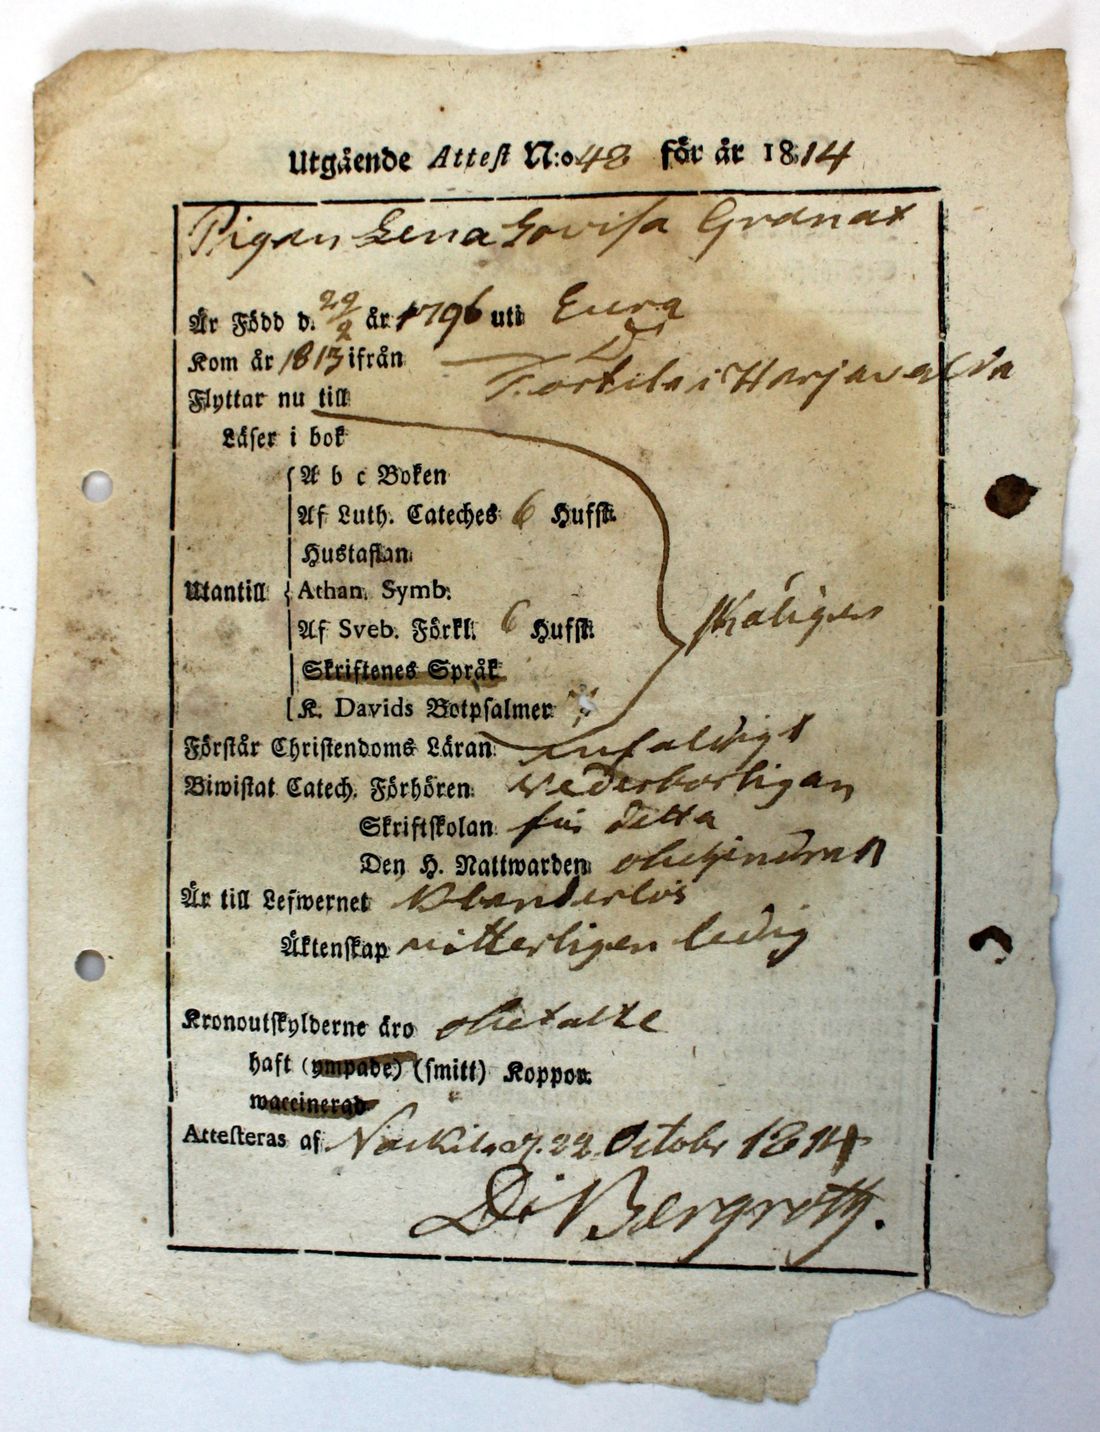 Utgående Attest N:o 48 för år 1814
Pigan Lena Lovisa Granat
Är Född d. 22/2 år 1796 uti Eura
Kom år 1813 ifrån D:o
Flyttar nu till Torttila i Harjavalda
Läser i bok
A b c Boken
Af Luth. Cateches 6 Hufst.
Hustaflan
Utantill Athan. Symb. skäligen
Af Sveb. Förkl. 6 Hufst.
Skriftenes Språk
K. Davids Botpsalmer
Förstår Christendoms Läran enfaldigt
Biwistat Catech. Förhören vederborligen
Skriftskolan för detta
Den H. Nattwarden obehindrad
Är till Lefwernet oklanderlös
Äktenskap vitterligen ledig
Kronoutskylderne äro obetalte
haft (ympade) (smitt) Koppor.
waccinerad
Attesteras af Nackila d. 22 October 1814
Bergroth.